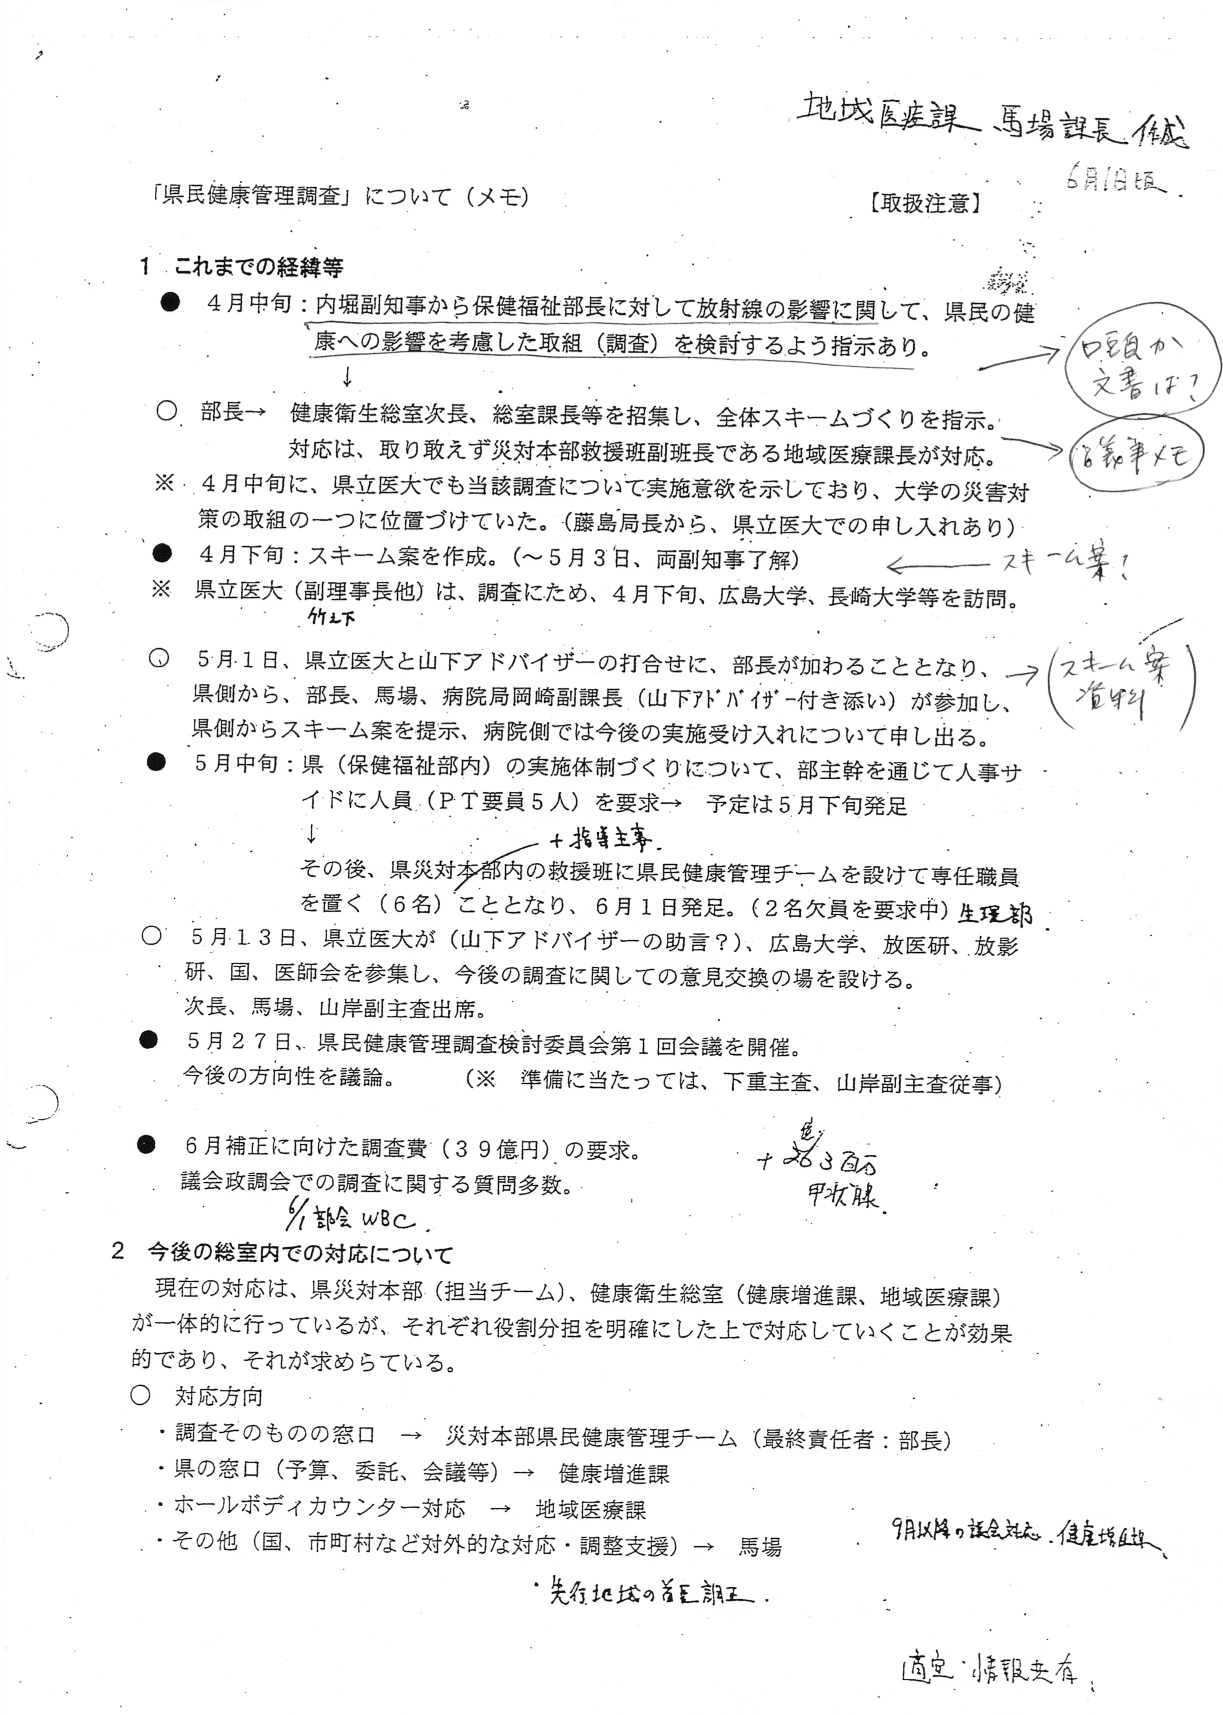 地域医療課 馬場課長 作成
6月1日頃
「県民健康管理調査」について（メモ）
【取扱注意】
１　これまでの経緯等
●　４月中旬：内堀副知事から保健福祉部長に対して放射線の影響に関して、県民の健
康への影響を考慮した取組（調査）を検討するよう指示あり。
→ 口頭か
文書は?
↓
○　部長→　健康衛生総室次長、総室課長等を招集し、全体スキームづくりを指示。
対応は、取り敢えず災対本部救援班副班長である地域医療課長が対応。
議事メモ
※　４月中旬に、県立医大でも当該調査について実施意欲を示しており、大学の災害対
策の取組の一つに位置づけていた。（藤島局長から、県立医大での申し入れあり）
●　４月下旬：スキーム案を作成。（～５月３日、両副知事了解）
← スキーム案!
※　県立医大（副理事長他）は、調査にため、４月下旬、広島大学、長崎大学等を訪問。
竹之下
○　５月１日、県立医大と山下アドバイザーの打合せに、部長が加わることとなり、
県側から、部長、馬場、病院局岡崎副課長（山下ｱﾄﾞﾊﾞｲｻﾞｰ付き添い）が参加し、
県側からスキーム案を提示、病院側では今後の実施受け入れについて申し出る。
→（スキーム案
資料）
●　５月中旬：県（保健福祉部内）の実施体制づくりについて、部主幹を通じて人事サ
イドに人員（ＰＴ要員５人）を要求→　予定は５月下旬発足
↓
＋指導主事.
その後、県災対本部内の救援班に県民健康管理チームを設けて専任職員
を置く（６名）こととなり、６月１日発足。（２名欠員を要求中）生環部.
○　５月１３日、県立医大が（山下アドバイザーの助言？）、広島大学、放医研、放影
研、国、医師会を参集し、今後の調査に関しての意見交換の場を設ける。
次長、馬場、山岸副主査出席。
●　５月２７日、県民健康管理調査検討委員会第１回会議を開催。
今後の方向性を議論。　　（※　準備に当たっては、下重主査、山岸副主査従事）
●　６月補正に向けた調査費（３９億円）の要求。
議会政調会での調査に関する質問多数。
＋263百万
甲状腺.
6/1 部会 WBC.
２　今後の総室内での対応について
現在の対応は、県災対本部（担当チーム）、健康衛生総室（健康増進課、地域医療課）
が一体的に行っているが、それぞれ役割分担を明確にした上で対応していくことが効果
的であり、それが求めらている。
○　対応方向
・調査そのものの窓口　→　災対本部県民健康管理チーム（最終責任者：部長）
・県の窓口（予算、委託、会議等）→　健康増進課
・ホールボディカウンター対応　→　地域医療課
・その他（国、市町村など対外的な対応・調整支援）→　馬場
9月以降の議会対応.健康増進課、
・先行地域の首長調正.
適宜・情報共有.